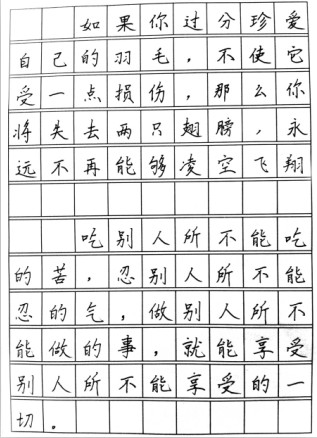 如果你过分珍爱
自己的羽毛，不使它
受一点损伤，那么你
将失去两只翅膀，永
远不再能够凌空飞翔
吃别人所不能吃
的苦，忍别人所不能
忍的气，做别人所不
能做的事，就能享受
别人所不能享受的一
切。